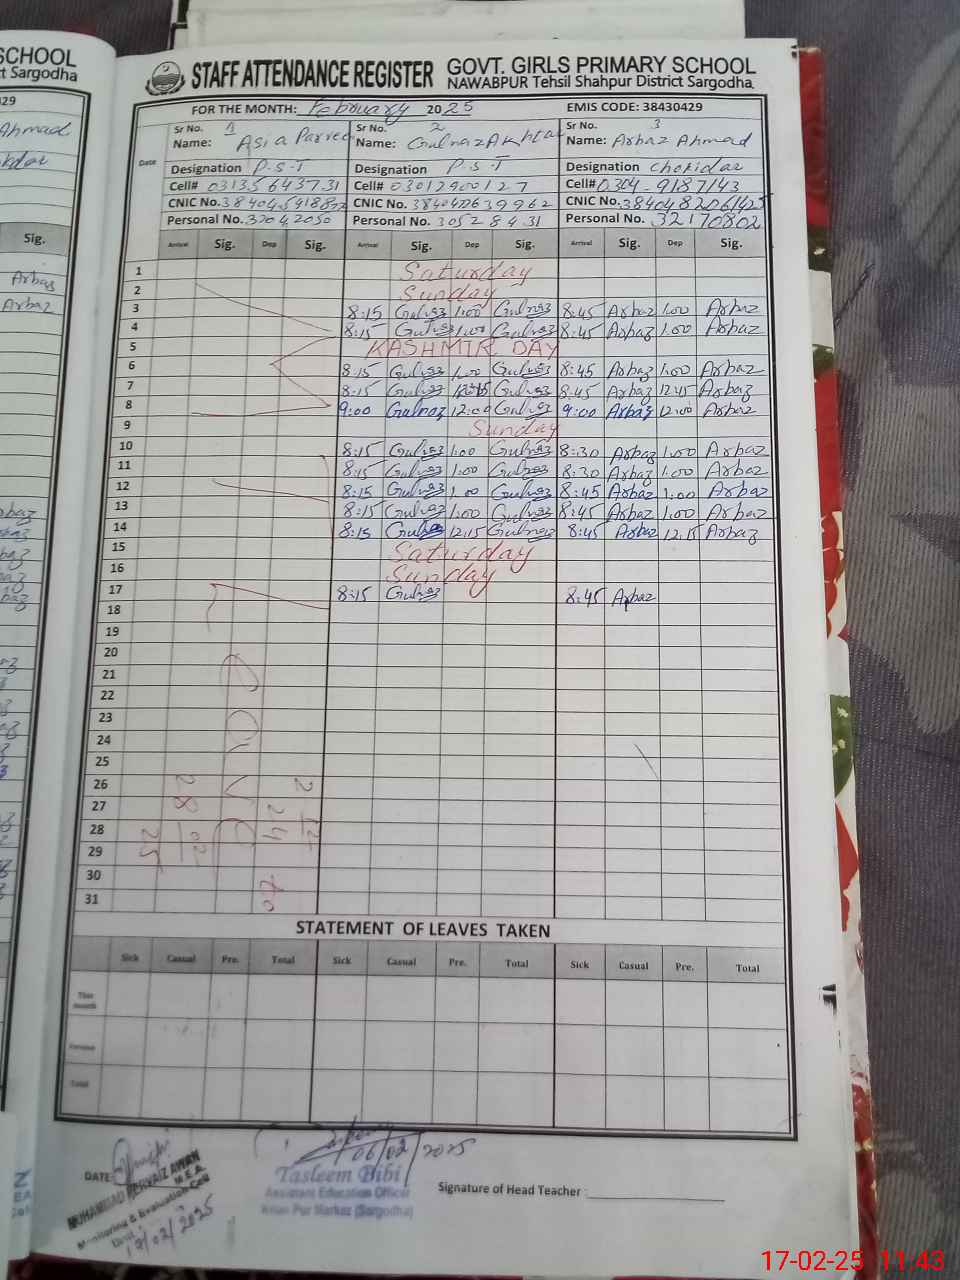 SCHOOL
ct Sargodha
STAFF ATTENDANCE REGISTER GOVT. GIRLS PRIMARY SCHOOL
NAWABPUR Tehsil Shahpur District Sargodha.
FOR THE MONTH: February 2025 EMIS CODE: 38430429
Date
Sr No. 1 Sr No. 2 Sr No. 3
Name: Asia Parveen Name: Gulnaz Akhtar Name: Arbaz Ahmad
Designation P.S.T Designation P.S.T Designation Chokidar
Cell# 03135643731 Cell# 03012900127 Cell# 0304-9187143
CNIC No. CNIC No. CNIC No.
Personal No. 32042050 Personal No. 30528431 Personal No. 32170802
Arrival Sig. Dep Sig. Arrival Sig. Dep Sig. Arrival Sig. Dep Sig.
1 Saturday
2 Sunday
3 8:15 Gulnaz 1:00 Gulnaz 8:45 Arbaz 1:00 Arbaz
4 8:15 Gulnaz 1:00 Gulnaz 8:45 Arbaz 1:00 Arbaz
5 KASHMIR DAY
6 8:15 Gulnaz 1:00 Gulnaz 8:45 Arbaz 1:00 Arbaz
7 8:15 Gulnaz Gulnaz 8:45 Arbaz 12:45 Arbaz
8 9:00 Gulnaz 12:00 Gulnaz 9:00 Arbaz 12:00 Arbaz
9 Sunday
10 8:15 Gulnaz 1:00 Gulnaz 8:30 Arbaz 1:00 Arbaz
11 8:15 Gulnaz 1:00 Gulnaz 8:30 Arbaz 1:00 Arbaz
12 8:15 Gulnaz 1:00 Gulnaz 8:45 Arbaz 1:00 Arbaz
13 8:15 Gulnaz 1:00 Gulnaz 8:45 Arbaz 1:00 Arbaz
14 8:15 Gulnaz 12:15 Gulnaz 8:45 Arbaz 12:15 Arbaz
15 Saturday
16 Sunday
17 8:15 Gulnaz 8:45 Arbaz
18
19
20
21
22
23
24
25
26
27
28
29
30
31
STATEMENT OF LEAVES TAKEN
Sick Casual Pre. Total Sick Casual Pre. Total Sick Casual Pre. Total
This month
Previous
Total
DATE
MUHAMMAD PERVAIZ AWAN
M.E.A.
Monitoring & Evaluation Cell
06/02/2025
Tasleem Bibi
Assistant Education Officer
Markaz (Sargodha)
Signature of Head Teacher :
17-02-25 11:43